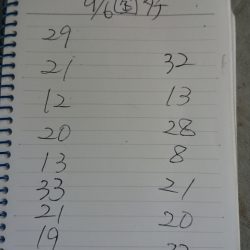 29
21 32
12 13
20 28
13 8
33 21
21 20
19